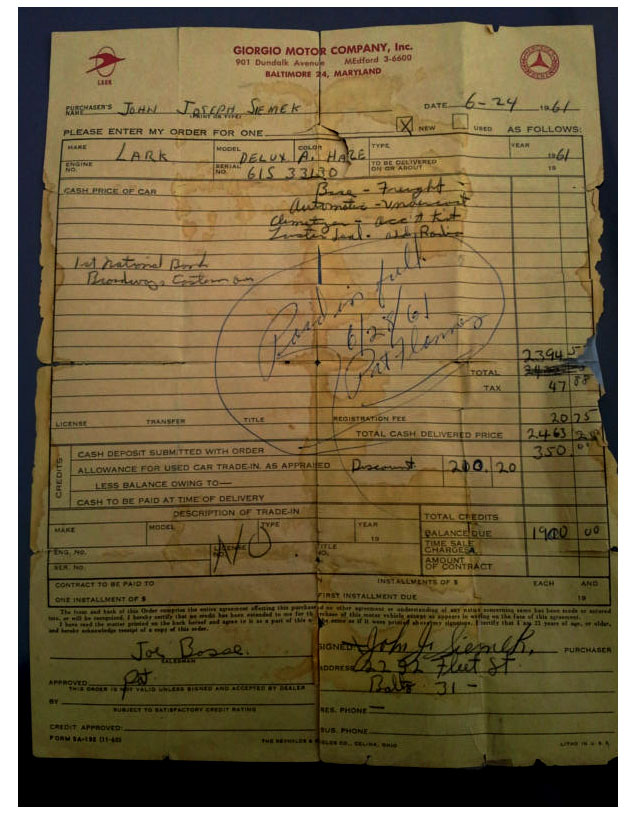 GIORGIO MOTOR COMPANY, Inc.
901 Dundalk Avenue MEdford 3-6600
BALTIMORE 24, MARYLAND
LARK
PURCHASER'S NAME JOHN JOSEPH SIEMEK DATE 6-24 1961
(PRINT OR TYPE)
PLEASE ENTER MY ORDER FOR ONE X NEW USED AS FOLLOWS:
MAKE LARK MODEL DELUX COLOR A. HAZE TYPE YEAR 1961
ENGINE NO. SERIAL NO. 61S 33130 TO BE DELIVERED ON OR ABOUT 19
CASH PRICE OF CAR Base - Freight -
Automatic - Undercoat
Climatizer - acc't Kit
Luster Seal - Radio
1st National Bank
Broadway & Eastern av
Paid in full
6/28/61
Pat
2394
TOTAL
TAX 47 88
LICENSE TRANSFER TITLE REGISTRATION FEE 20 75
TOTAL CASH DELIVERED PRICE 2463
CREDITS
CASH DEPOSIT SUBMITTED WITH ORDER 350 00
ALLOWANCE FOR USED CAR TRADE-IN, AS APPRAISED Discount 200.20
LESS BALANCE OWING TO—
CASH TO BE PAID AT TIME OF DELIVERY
DESCRIPTION OF TRADE-IN TOTAL CREDITS
MAKE MODEL TYPE YEAR 19 BALANCE DUE 1900 00
NO
ENG. NO. LICENSE NO. TITLE NO. TIME SALE CHARGES
SER. NO. AMOUNT OF CONTRACT
CONTRACT TO BE PAID TO INSTALLMENTS OF $ EACH AND
ONE INSTALLMENT OF $ FIRST INSTALLMENT DUE 19
The front and back of this Order comprise the entire agreement affecting this purchase and no other agreement or understanding of any nature concerning same has been made or entered
into, or will be recognized. I hereby certify that no credit has been extended to me for the purchase of this motor vehicle except as appears in writing on the face of this agreement.
I have read the matter printed on the back hereof and agree to it as a part of this order the same as if it were printed above my signature. I certify that I am 21 years of age, or older,
and hereby acknowledge receipt of a copy of this order.
Joe Bosse SIGNED John J. Siemek PURCHASER
SALESMAN
ADDRESS Fleet St
APPROVED Pat Balto 31 -
THIS ORDER IS NOT VALID UNLESS SIGNED AND ACCEPTED BY DEALER
BY RES. PHONE —
SUBJECT TO SATISFACTORY CREDIT RATING
CREDIT APPROVED: BUS. PHONE
FORM SA-192 (11-60) THE REYNOLDS & REYNOLDS CO., CELINA, OHIO LITHO IN U.S.A.